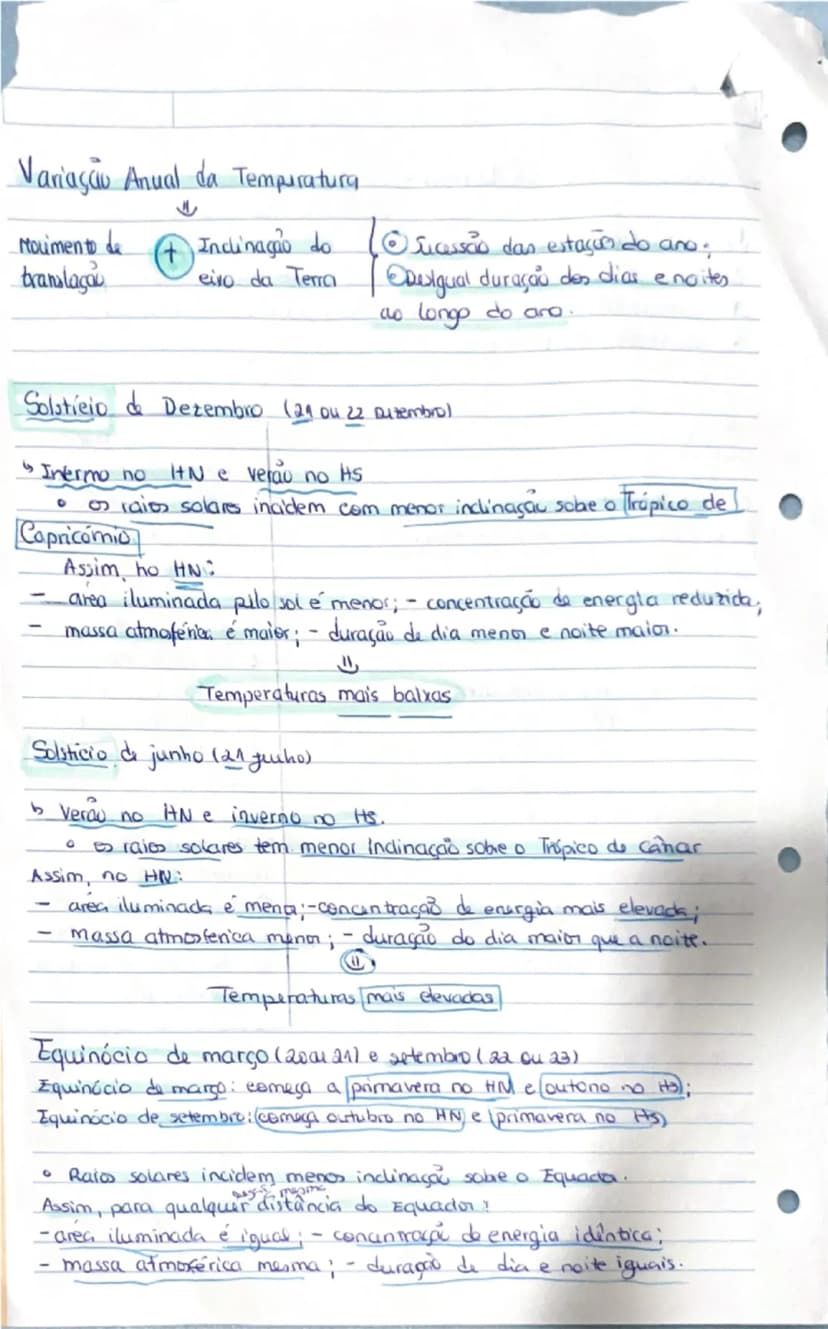 Variação Anual da Temperatura
⇓
Movimento de translação + Inclinação do eixo da Terra { • Sucessão das estações do ano;
• Desigual duração dos dias e noites
ao longo do ano.
Solstício de Dezembro (21 ou 22 Dezembro)
↳ Inverno no HN e verão no HS
• os raios solares incidem com menor inclinação sobe o Trópico de
Capricórnio
Assim, no HN:
- área iluminada pelo sol é menor; - concentração de energia reduzida;
- massa atmoférica é maior; - duração de dia menor e noite maior.
⇓
Temperaturas mais baixas
Solstício de junho (21 junho)
↳ Verão no HN e inverno no HS.
• os raios solares tem menor Inclinação sobe o Trópico de Câncar
Assim, no HN:
- área iluminada é menor; - concentração de energia mais elevada;
- massa atmosferica menor; - duração do dia maior que a noite.
⇓
Temperaturas mais elevadas
Equinócio de março (20 ou 21) e setembro (22 ou 23)
Equinócio de março: começa a primavera no HN e outono no HS;
Equinócio de setembro: começa outubro no HN e primavera no HS
• Raios solares incidem menos inclinação sobe o Equador.
mesma
Assim, para qualquer distância do Equador:
- área iluminada é igual; - concentração de energia idêntica;
- massa atmosférica mesma; - duração de dia e noite iguais.